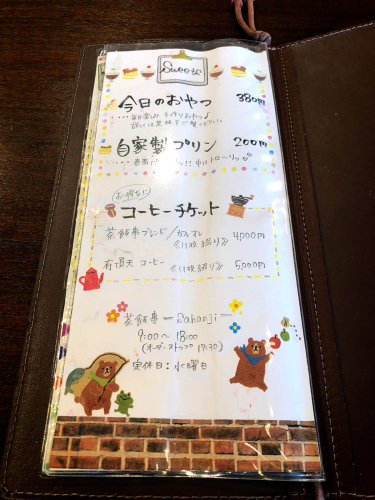 Sweets
今日のおやつ 380円
・・・毎日変わる 手作りおやつ♪
詳しくは黒板をご覧ください。
自家製プリン 200円
・・・表面 !! 中はトローリッ♡
お得な!!
コーヒーチケット
茶飯事ブレンド/カフェオレ
《11枚綴り》 4,000円
有頂天コーヒー
《11枚綴り》 5,000円
茶飯事 ー Sahanji ー
9:00〜18:00
(オーダーストップ 17:30)
定休日:水曜日